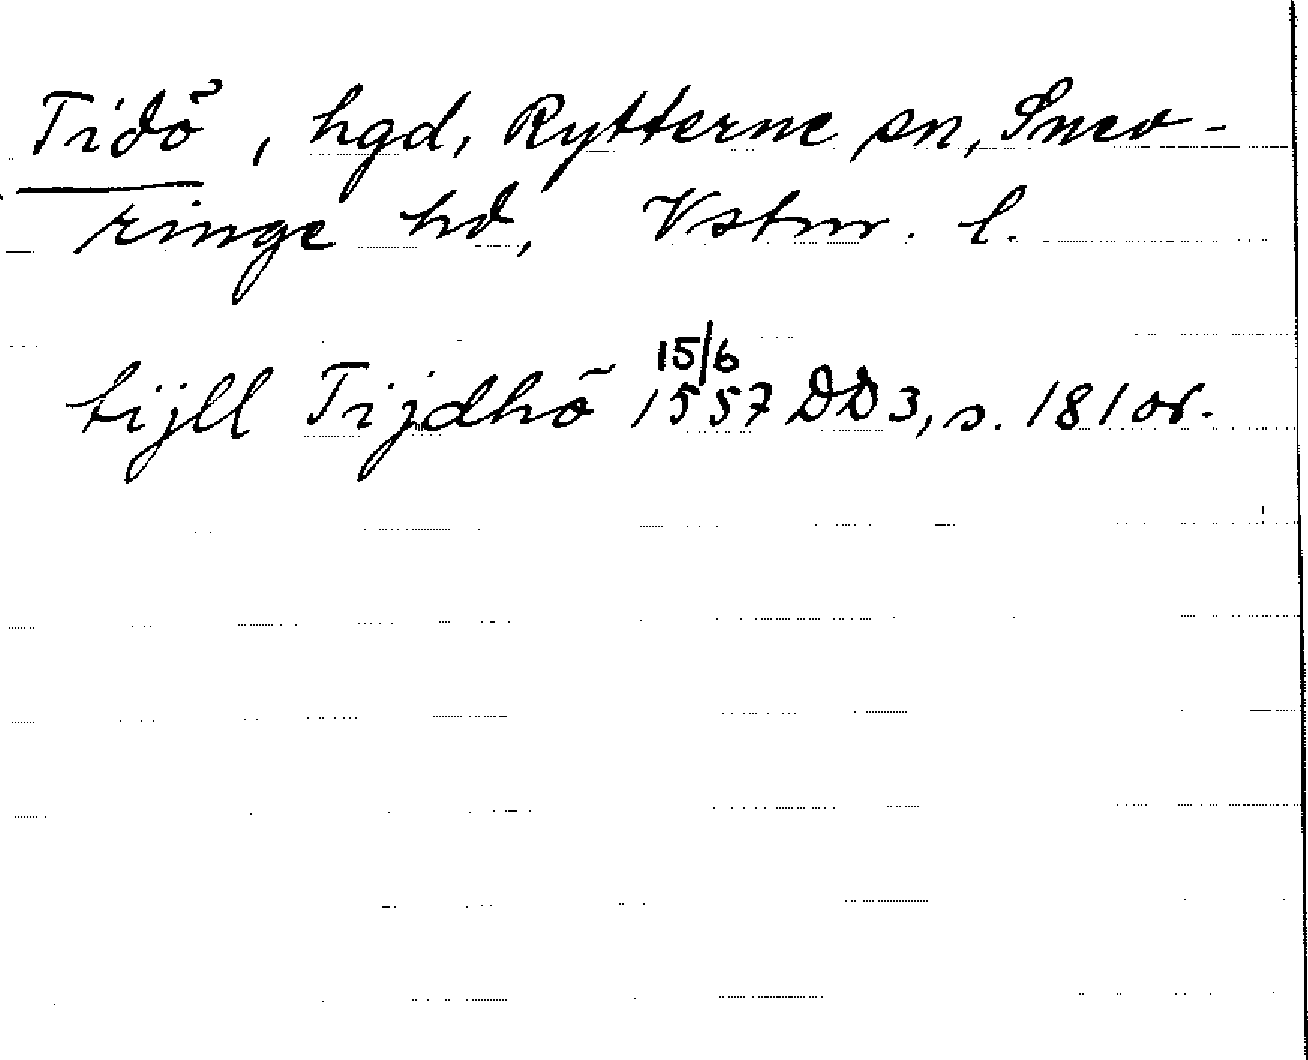 Tidö, hgd, Rytterne sn, Snev-
ringe hd, Vstm. l.
tijll Tijdhö 15/6 1557 DD3, s. 181 or.